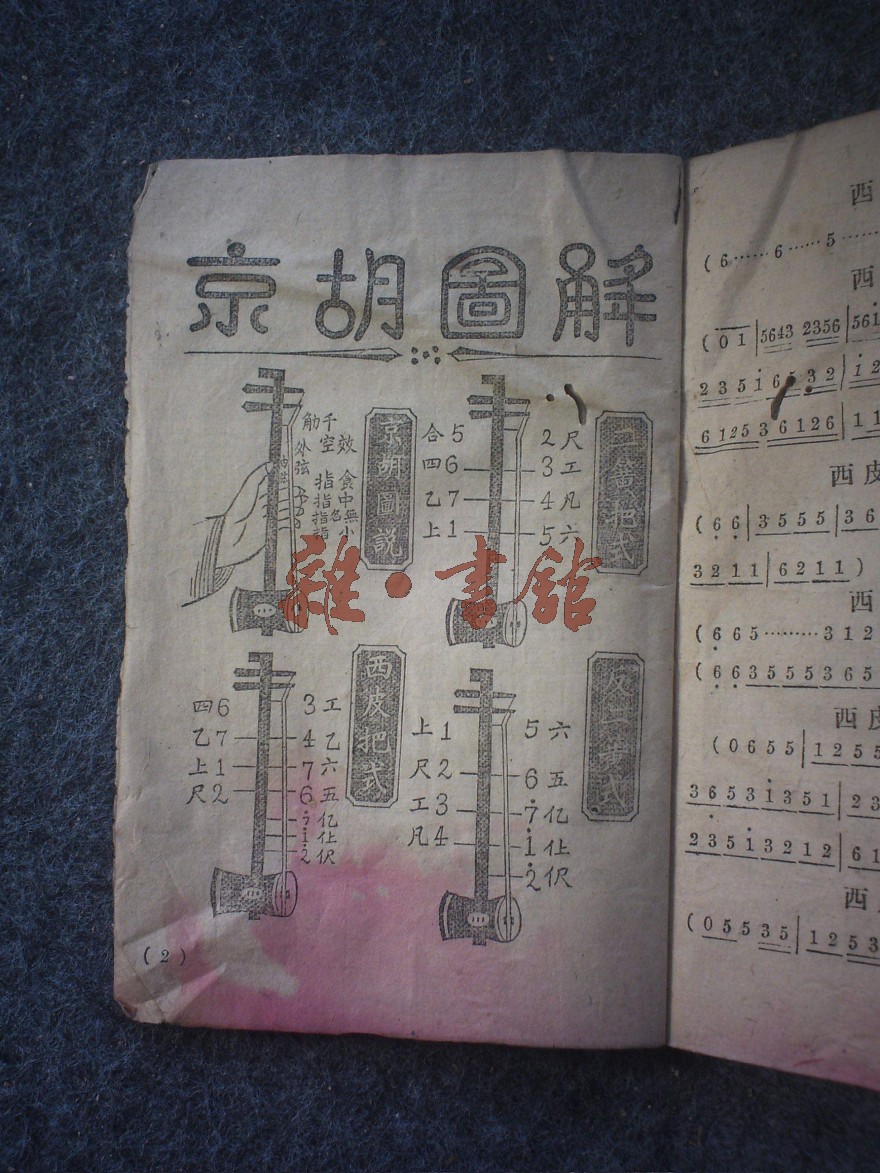 京胡圖解
京胡圖說
千
効
外弦
空
食
指
中
無
名
小
合 5 2 尺
四 6 3 工
乙 7 4 凡
上 1 5 六
二簧把式
雜·書舘
西皮把式
四 6 3 工
乙 7 4 乙
上 1 7 六
尺 2 6 五
亿
1̇ 仩
2̇ 伬
反二黄式
上 1 5 六
尺 2 6 五
工 3 7̇ 亿
凡 4 1̇ 仩
2̇ 伬
(2)
西
( 6······6······5······
西
( 0 1 | 5643 2356 | 561
2 3 5 1̇ 6 5 3 2 | 1̇ 2
6 125 3 6 1 2 6 | 1 1
西皮
( 6̣ 6̣ | 3 5 5 5 | 3 6
3 2 1 1 | 6 2 1 1 )
西
( 6̣ 6 5 ········· 3 1 2
( 6̣ 6̣ 3 5 5 5 3 6 5
西皮
( 0 6 5 5 | 1 2 5 5
3 6 5 3 1̇ 3 5 1 | 2 3
2 3 5 1̇ 3 2 1 2 | 6 1
西
( 0 5 5 3 5 | 1 2 5 3